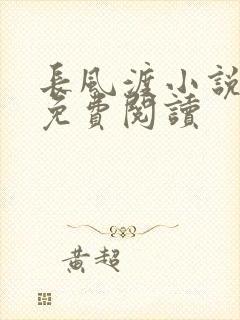 長風渡小說
免費閱讀
黃超